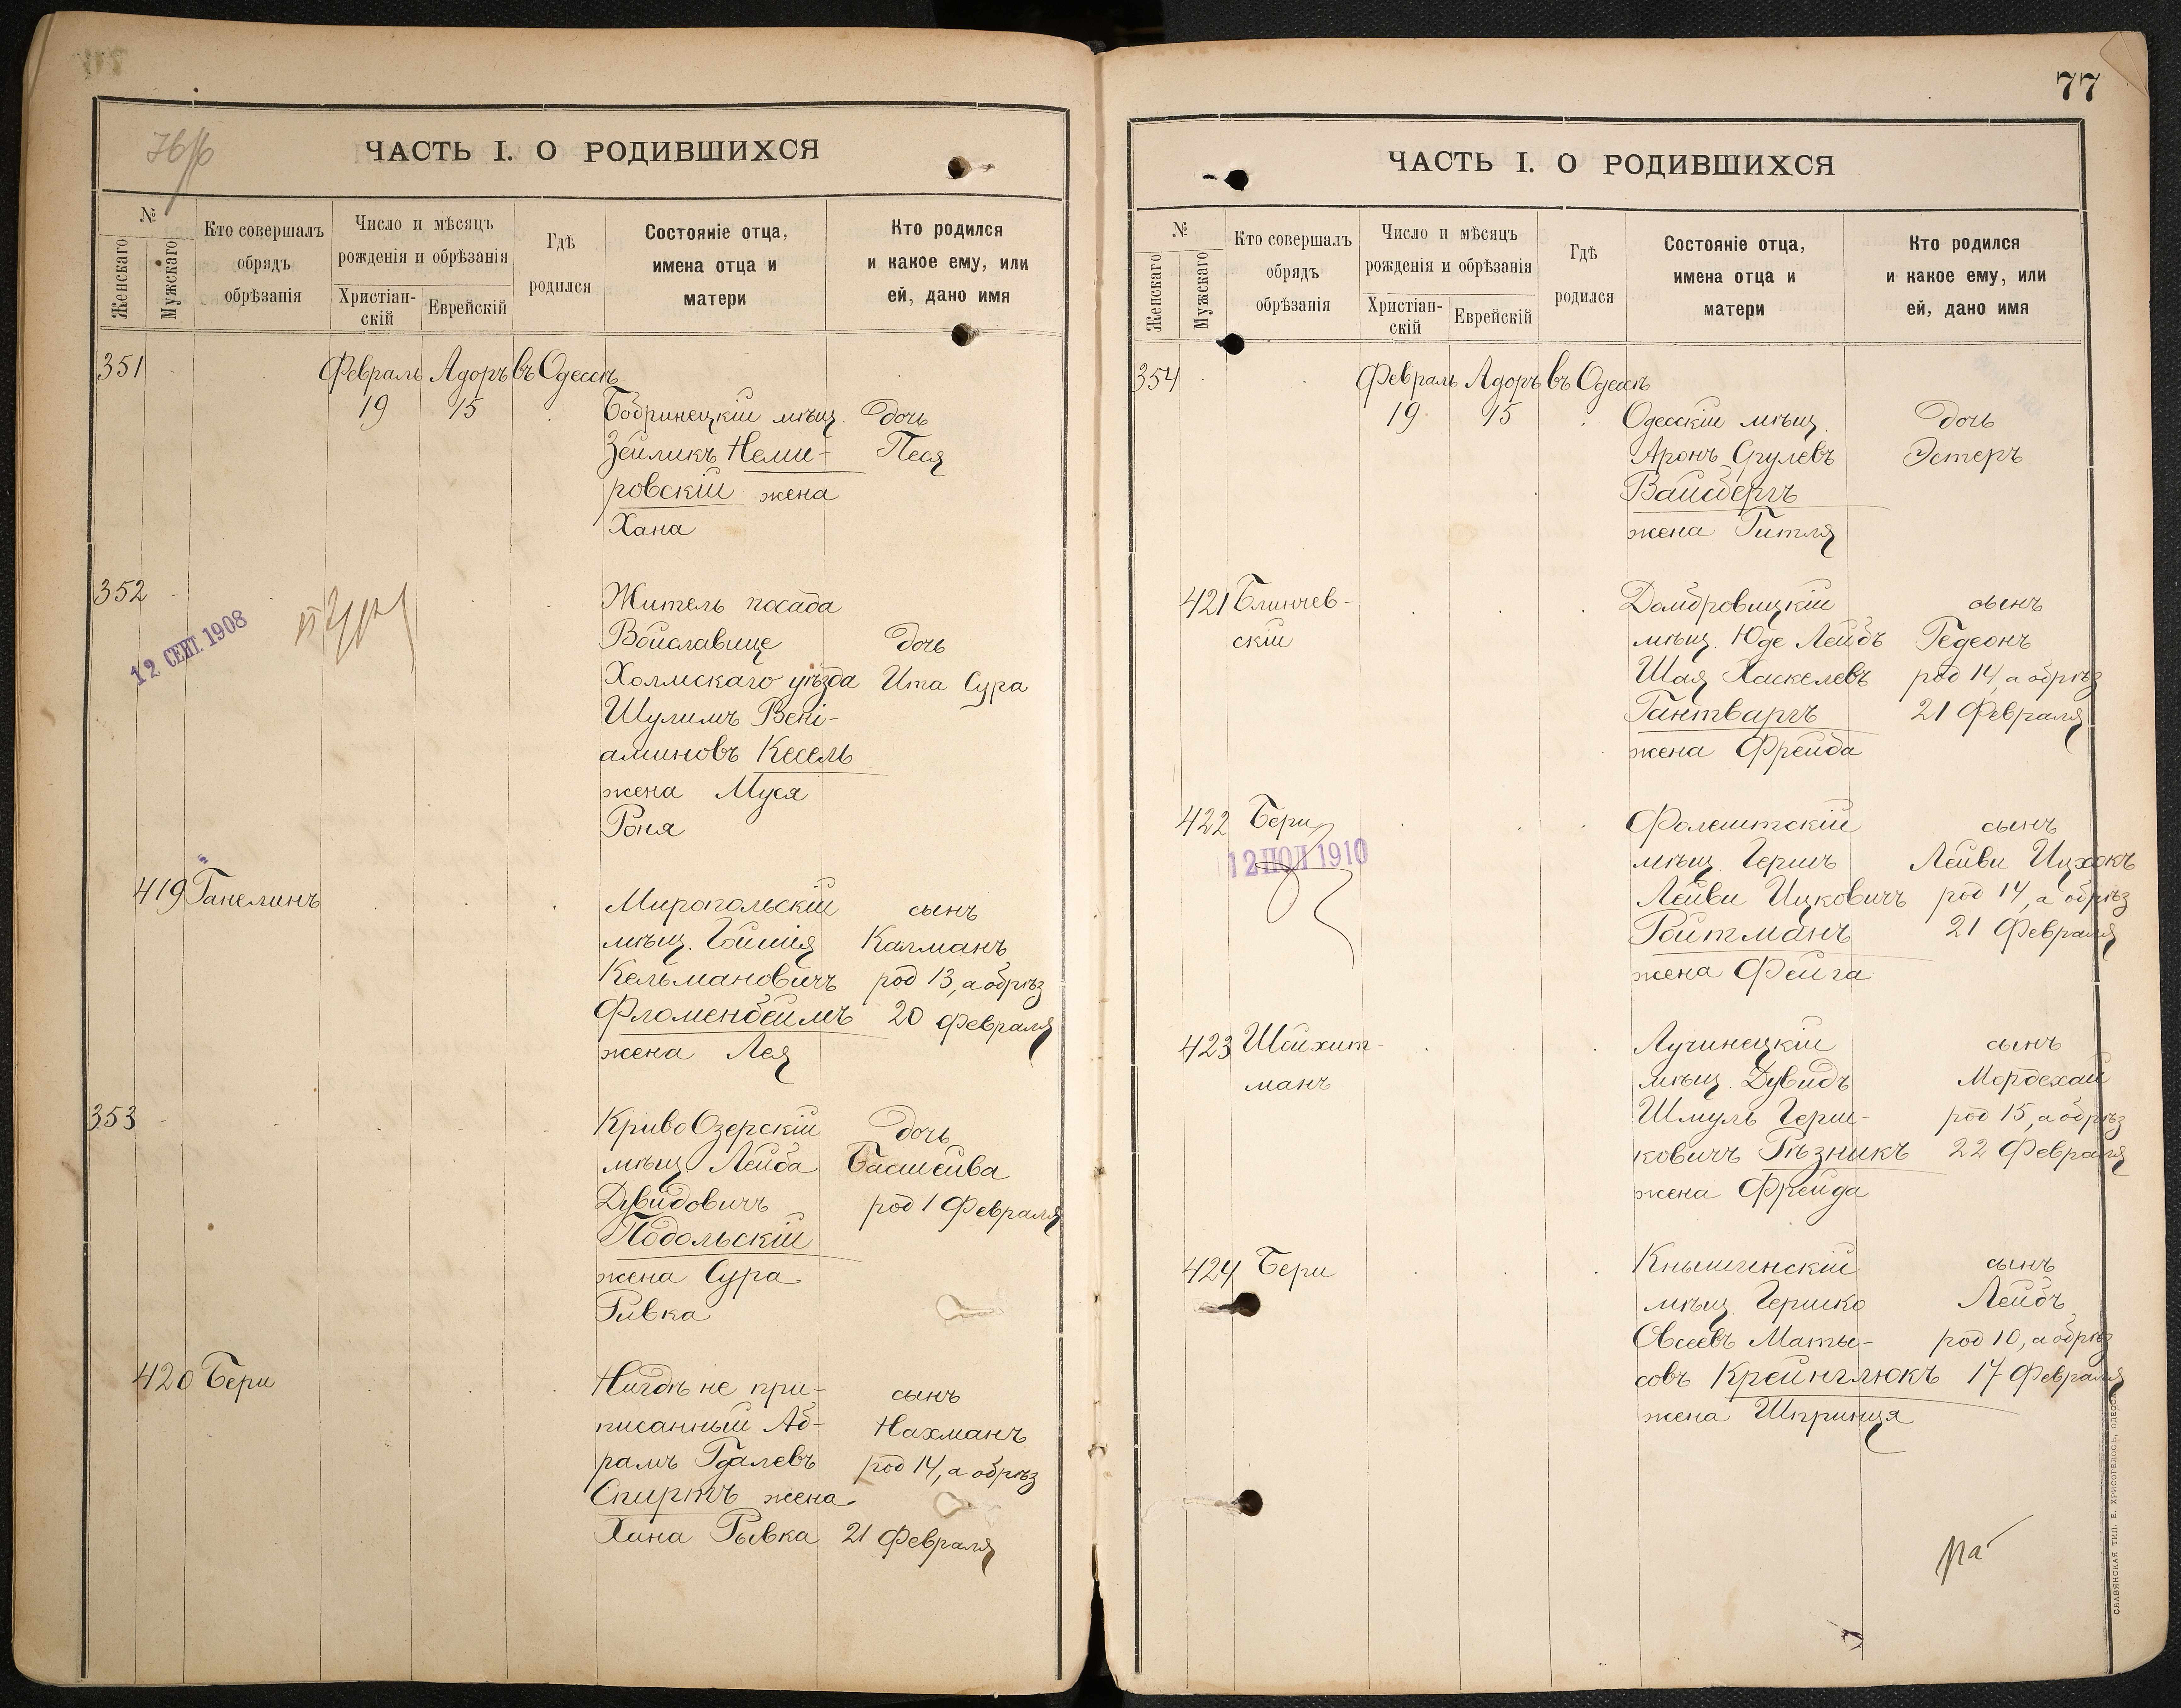 76
ЧАСТЬ I. О РОДИВШИХСЯ
№
Женскаго
Мужскаго
Кто совершалъ
обрядъ
обрѣзанія
Число и мѣсяцъ
рожденія и обрѣзанія
Христіан-
скій
Еврейскій
Гдѣ
родился
Состояніе отца,
имена отца и
матери
Кто родился
и какое ему, или
ей, дано имя
351 Февраль Адоръ въ Одессѣ
19 15 Бобринецкій мѣщ. дочь
Зейликъ Неми- Песя
ровскій жена
Хана
352 Житель посада
Войславице дочь
12 СЕНТ. 1908
Холмскаго уѣзда Ита Сура
Шулимъ Вені-
аминовъ Кесель
жена Муся
Роня
419 Ганелинъ Миропольскій сынъ
мѣщ. Гойшія Калманъ
Кельмановичъ род 13, а обрѣз
Фломенбеймъ 20 Февраля
жена Лея
353 КривоОзерскій дочь
мѣщ Лейба Басшейва
Дувидовичъ род 1 Февраля
Подольскій
жена Сура
Ривка
420 Бери Нигдѣ не при- сынъ
писанный Аб- Нахманъ
рамъ Гдалевъ род 14, а обрѣз
Спиртъ жена
Хана Рывка 21 Февраля
77
ЧАСТЬ I. О РОДИВШИХСЯ
№
Женскаго
Мужскаго
Кто совершалъ
обрядъ
обрѣзанія
Число и мѣсяцъ
рожденія и обрѣзанія
Христіан-
скій
Еврейскій
Гдѣ
родился
Состояніе отца,
имена отца и
матери
Кто родился
и какое ему, или
ей, дано имя
354 Февраль Адоръ въ Одессѣ
19 15 Одесскій мѣщ. дочь
Аронъ Срулевъ Эстеръ
Вайсбергъ
жена Гитля
421 Блинчев- Домбровицкій сынъ
скій мѣщ. Юде Лейбъ Гедеонъ
Шая Хаскелевъ род 14, а обрѣз
Гантваргъ 21 Февраля
жена Фрейда
422 Бери Фолештскій сынъ
12 ИЮЛ 1910
мѣщ Гершъ Лейви Ицхокъ
Лейви Ицковичъ род 14, а обрѣз
Ройтманъ 21 Февраля
жена Фейга
423 Шойхит- Лучинецкій сынъ
манъ мѣщ. Дувидъ Мордехай
Шмуль Герш- род 15, а обрѣз
ковичъ Рѣзникъ 22 Февраля
жена Фрейда
424 Бери Кнышинскій сынъ
мѣщ Гершко Лейбъ
Овсеевъ Маты- род 10, а обрѣз
совъ Крейнглюкъ 17 Февраля
жена Шпринця
СЛАВЯНСКАЯ ТИП. Е. ХРИСОГЕЛОСЪ, ОДЕССА